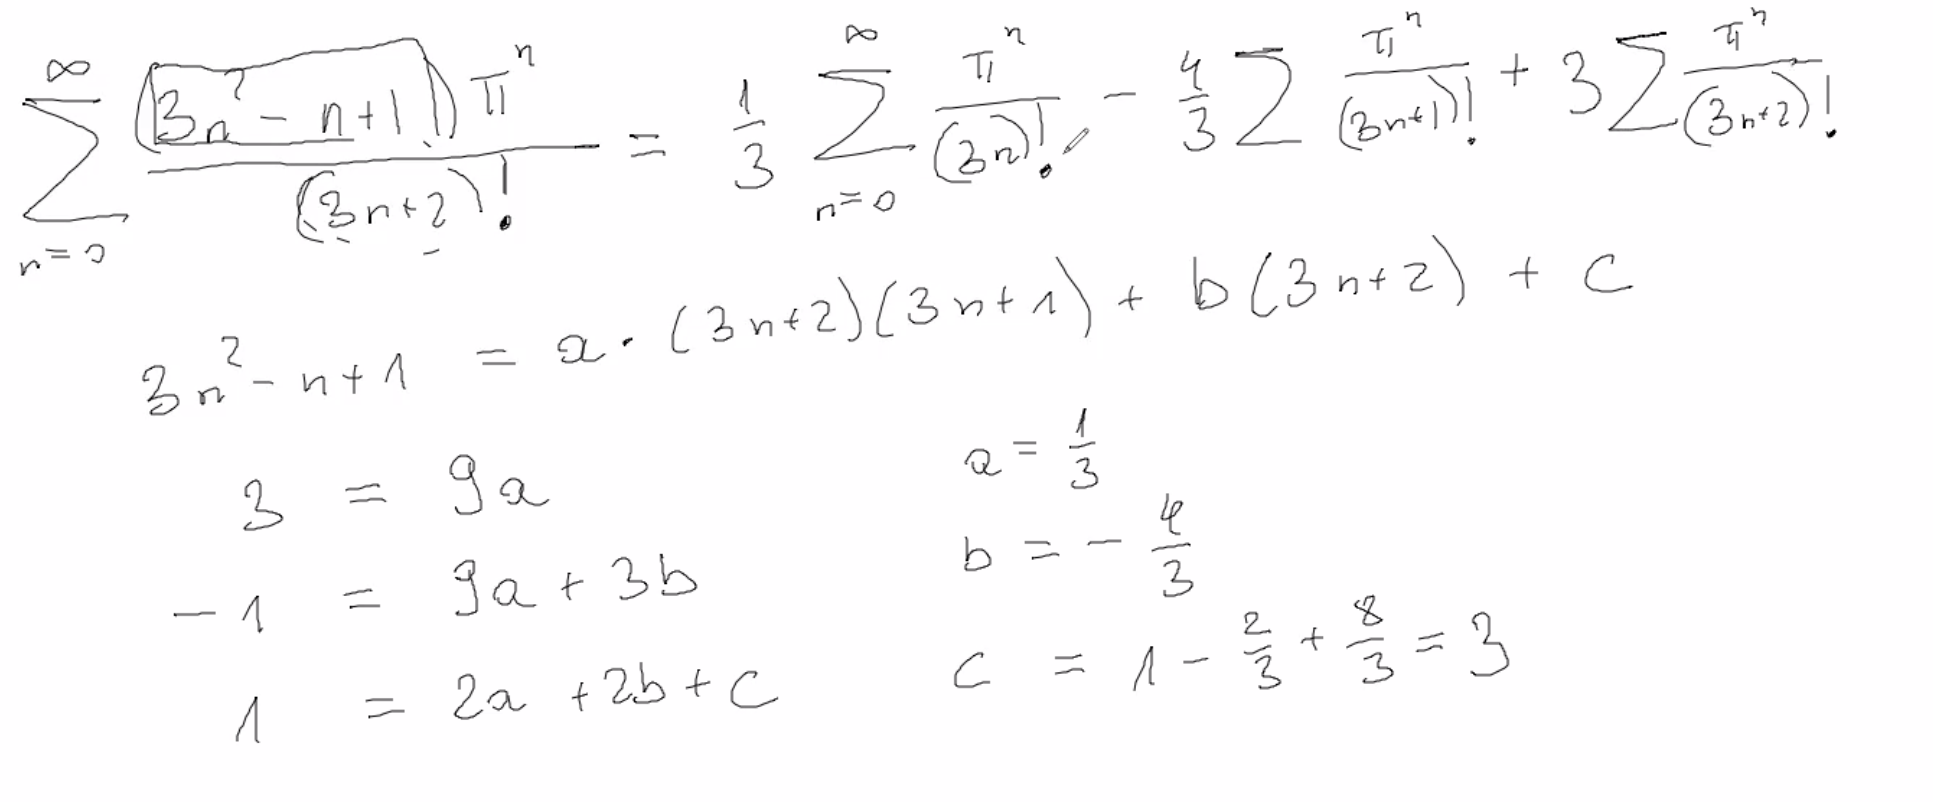 ∑_{n=0}^{∞} (3n² - n + 1) π^n / (3n+2)! = 1/3 ∑_{n=0}^{∞} π^n / (3n)! - 4/3 ∑ π^n / (3n+1)! + 3 ∑ π^n / (3n+2)!
3n² - n + 1 = a · (3n+2)(3n+1) + b(3n+2) + c
3 = 9a
a = 1/3
-1 = 9a + 3b
b = - 4/3
1 = 2a + 2b + c
c = 1 - 2/3 + 8/3 = 3